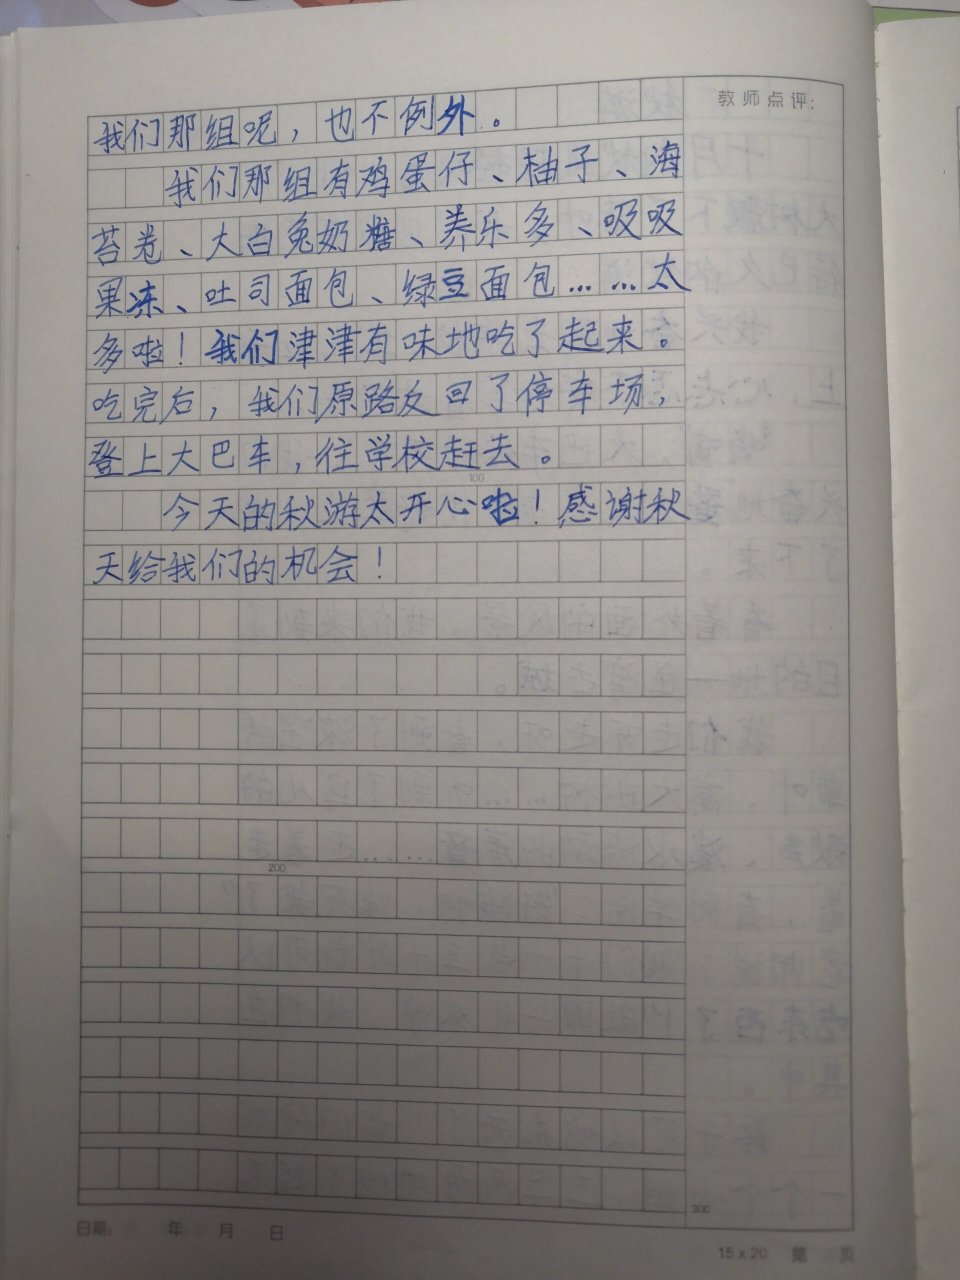 教师点评：
我们那组呢，也不例外。
我们那组有鸡蛋仔、柚子、海
苔卷、大白兔奶糖、养乐多、吸吸
果冻、吐司面包、绿豆面包……太
多啦！我们津津有味地吃了起来。
吃完后，我们原路反回了停车场，
登上大巴车，往学校赶去。
100
今天的秋游太开心啦！感谢秋
天给我们的机会！
200
300
日期： 年 月 日
15×20 第 页